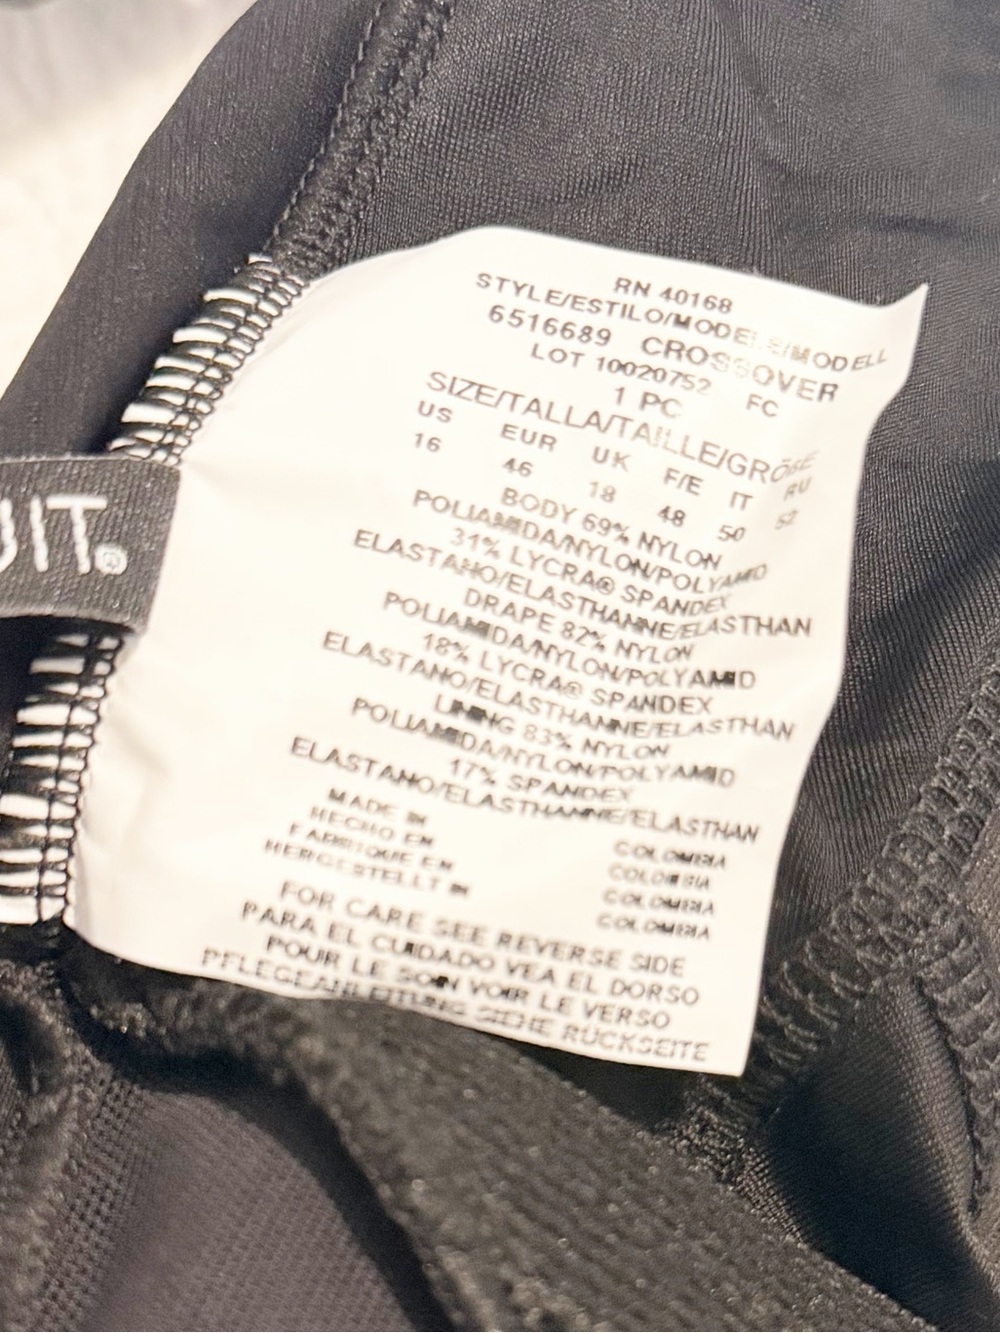 RN 40168
STYLE/ESTILO/MODELE/MODELL
6516689 CROSSOVER
LOT 10020752 FC
1 PC
SIZE/TALLA/TAILLE/GRÖßE
US EUR UK F/E IT RU
16 46 18 48 50 52
BODY 69% NYLON
POLIAMIDA/NYLON/POLYAMID
31% LYCRA® SPANDEX
ELASTANO/ELASTHANNE/ELASTHAN
DRAPE 82% NYLON
POLIAMIDA/NYLON/POLYAMID
18% LYCRA® SPANDEX
ELASTANO/ELASTHANNE/ELASTHAN
LINING 83% NYLON
POLIAMIDA/NYLON/POLYAMID
17% SPANDEX
ELASTANO/ELASTHANNE/ELASTHAN
MADE IN COLOMBIA
HECHO EN COLOMBIA
FABRIQUE EN COLOMBIA
HERGESTELLT IN COLOMBIA
FOR CARE SEE REVERSE SIDE
PARA EL CUIDADO VEA EL DORSO
POUR LE SOIN VOIR LE VERSO
PFLEGEANLEITUNG SIEHE RÜCKSEITE
UIT®